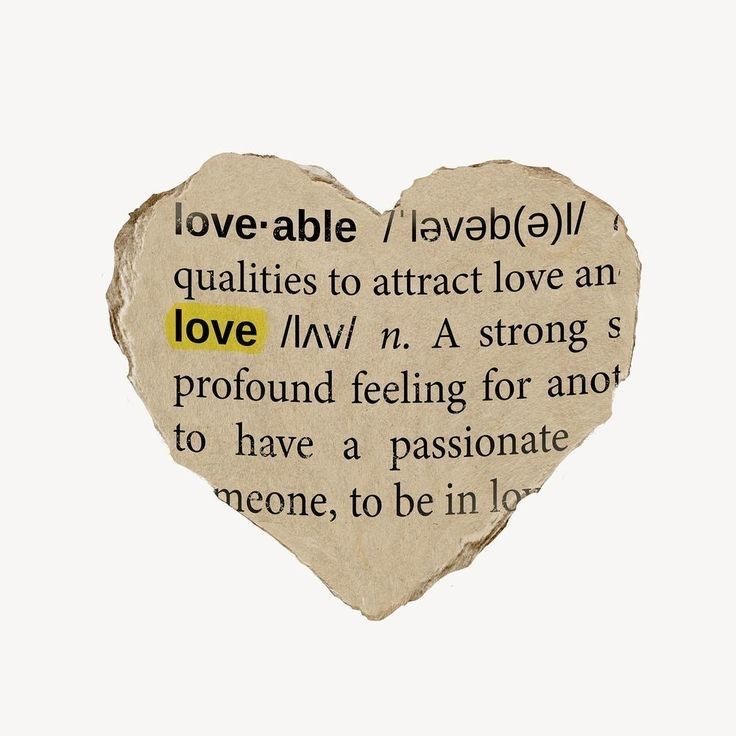 love·able /ˈləvəb(ə)l/
qualities to attract love an
love /lʌv/ n. A strong s
profound feeling for anot
to have a passionate
meone, to be in lov